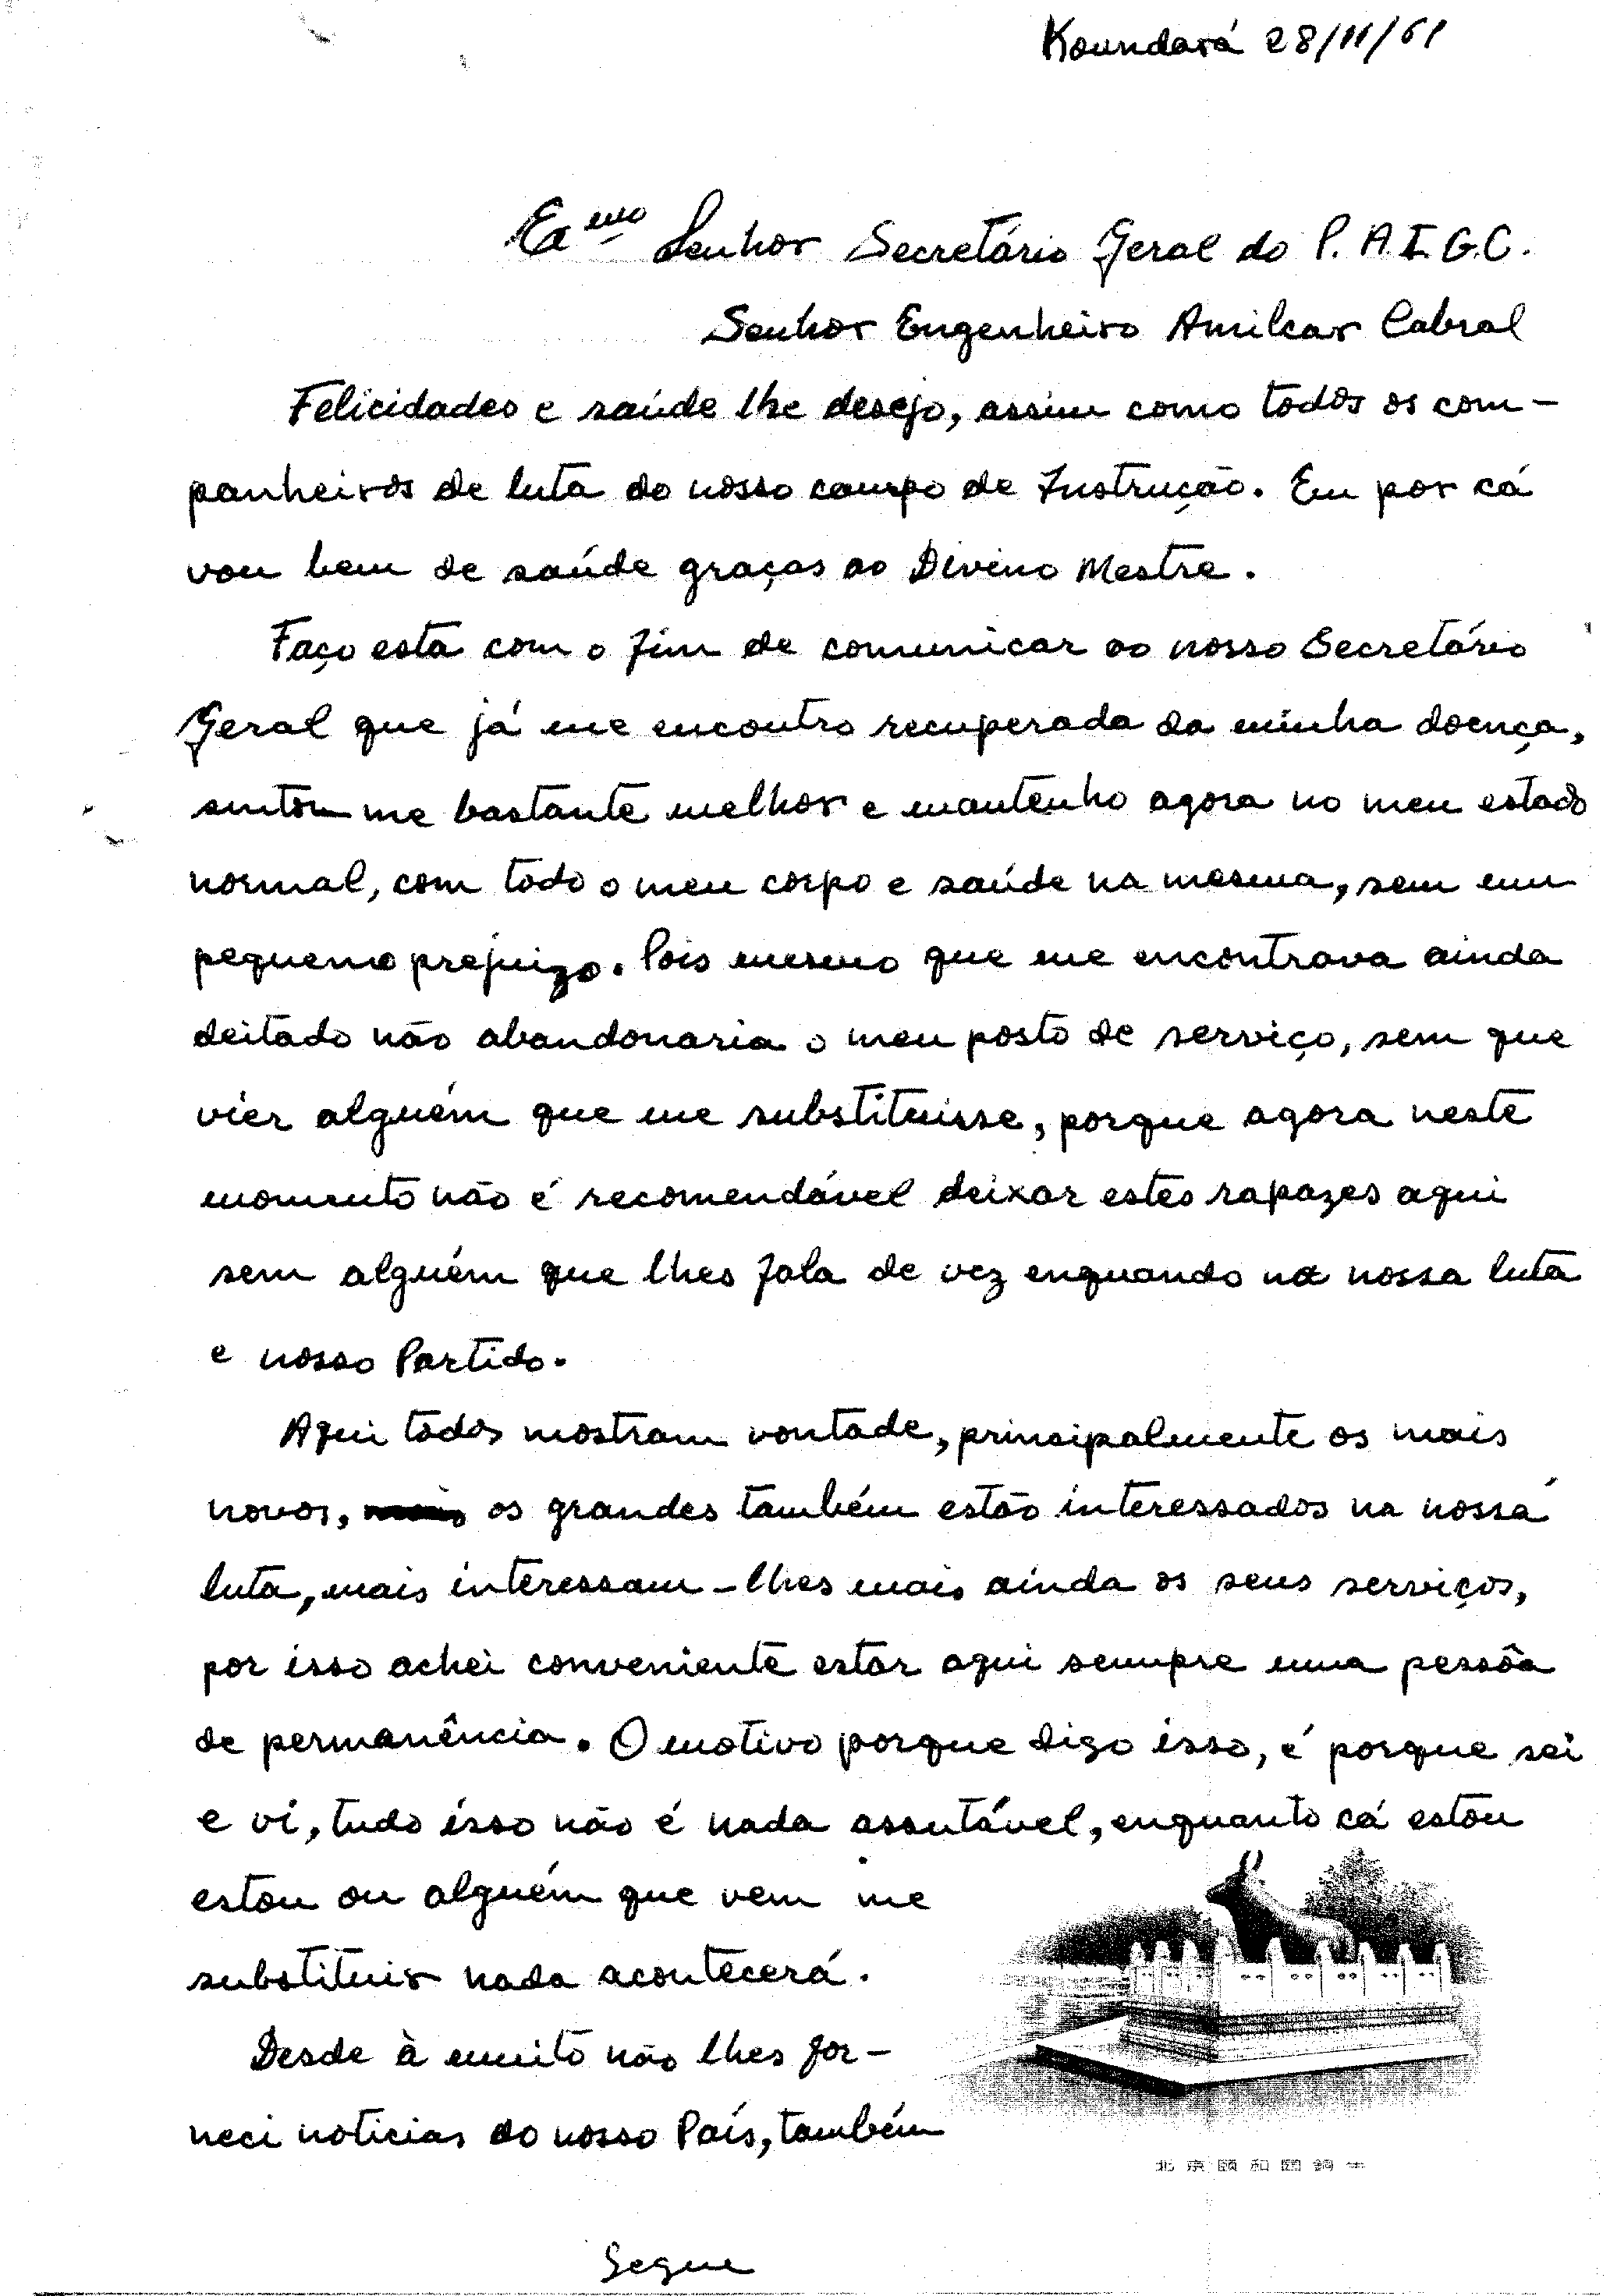 Koundará 28/11/61
Exmo Senhor Secretário Geral do P.A.I.G.C.
Senhor Engenheiro Amilcar Cabral
Felicidades e saúde lhe desejo, assim como todos os com-
panheiros de luta do nosso campo de Instrução. Eu por cá
vou bem de saúde graças ao Divino Mestre.
Faço esta com o fim de comunicar ao nosso Secretário
Geral que já me encontro recuperada da minha doença,
sinto me bastante melhor e mantenho agora no meu estado
normal, com todo o meu corpo e saúde na mesma, sem um
pequeno prejuizo. Pois mesmo que me encontrava ainda
deitado não abandonaria o meu posto de serviço, sem que
vier alguém que me substituisse, porque agora neste
momento não é recomendável deixar estes rapazes aqui
sem alguém que lhes fala de vez enquando na nossa luta
e nosso Partido.
Aqui todos mostram vontade, principalmente os mais
novos, os grandes também estão interessados na nossa
luta, mais interessam-lhes mais ainda os seus serviços,
por isso achei conveniente estar aqui sempre uma pessôa
de permanência. O motivo porque digo isso, é porque sei
e vi, tudo isso não é nada assutável, enquanto cá estou
estou ou alguém que vem me
substituir nada acontecerá.
Desde à muito não lhes for-
neci noticias do nosso País, também
北京頤和園銅牛
Segue